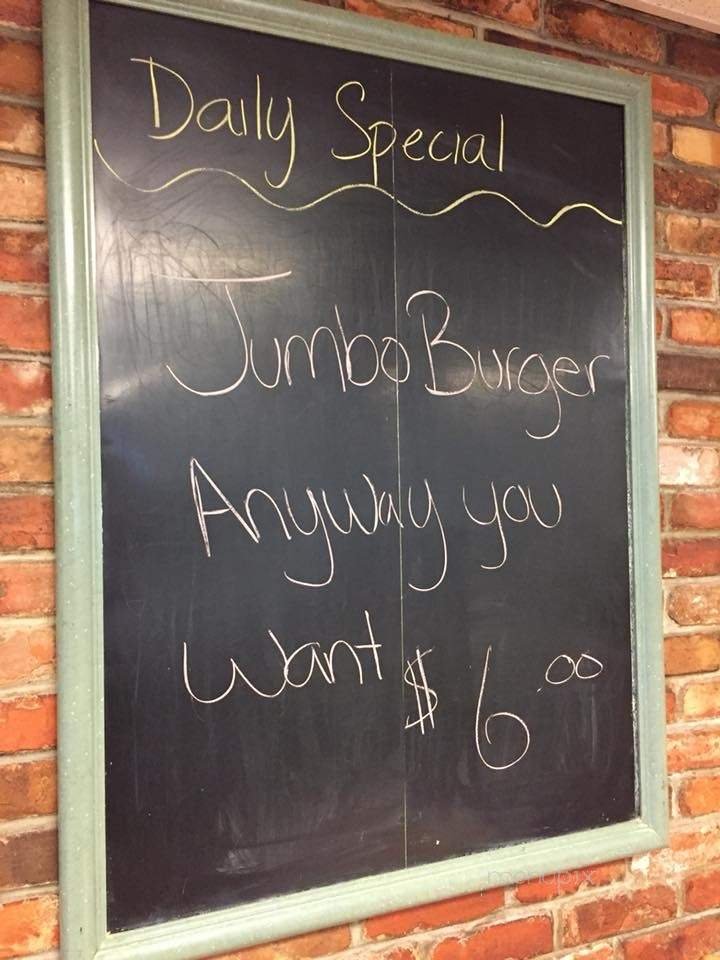 Daily Special
Jumbo Burger
Anyway you
Want $6.00
menupix